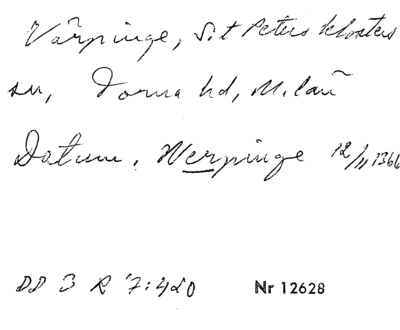 Värpinge, S:t Peters klosters
sn, Torna hd, M.lan
Datum. Werpinge 12/11 1366
DD 3 R 7:420
Nr 12628